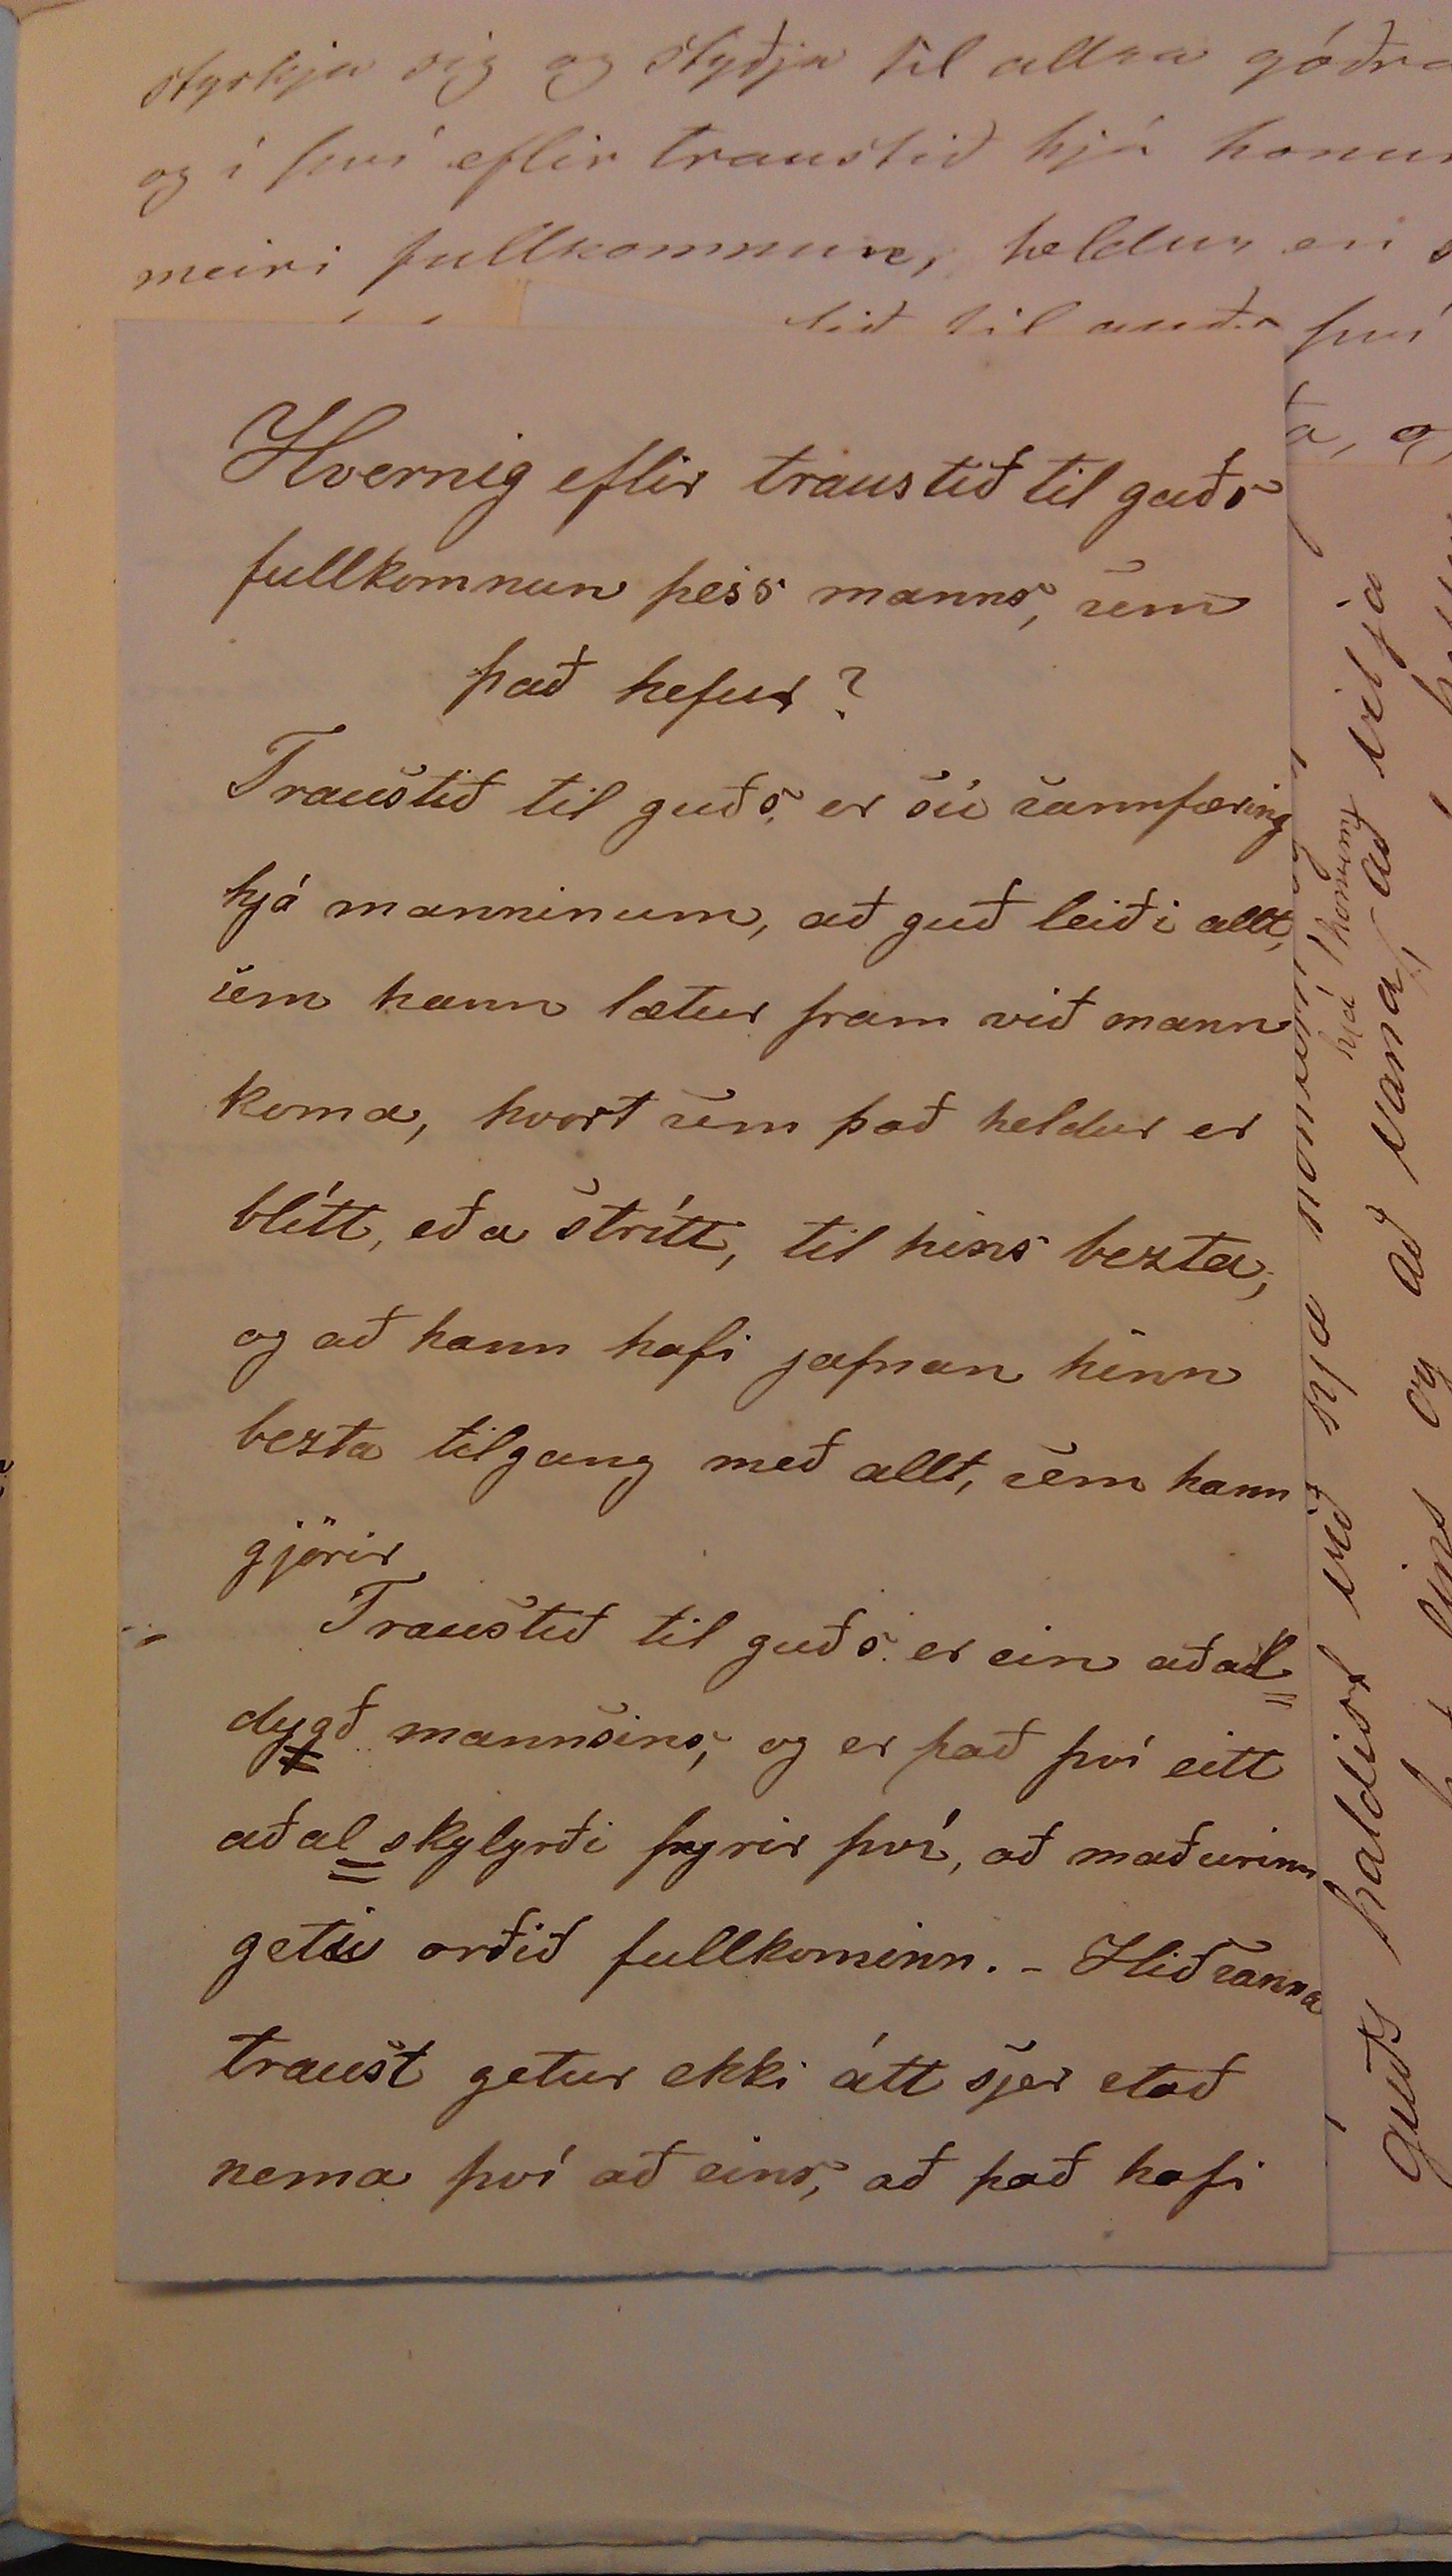 styrkja sig og styðja til allra góðra
og í því eflir traustið hjá honum
meiri fullkomnun, heldur en
tið til guðs því
Hvernig eflir traustið til guðs
fullkomnun þess manns, sem
það hefur?
Traustið til guðs, er sú sannfæring
hjá manninum, að guð leiði allt,
sem hann lætur fram við mann
koma, hvort sem það heldur er
blítt, eða strítt, til hins bezta,
og að hann hafi jafnan hinn
bezta tilgang með allt, sem hann
gjörir
Traustið til guðs er ein aðal=
dygð mannsins, og er það því eitt
aðal=skylyrði fyrir því, að maðurinn
geti orðið fullkominn. - Hið sanna
traust getur ekki átt sjer stað
nema því að eins, að það hafi
hjá honum
guðs haldist við hjá honum
og að vana, að vilja